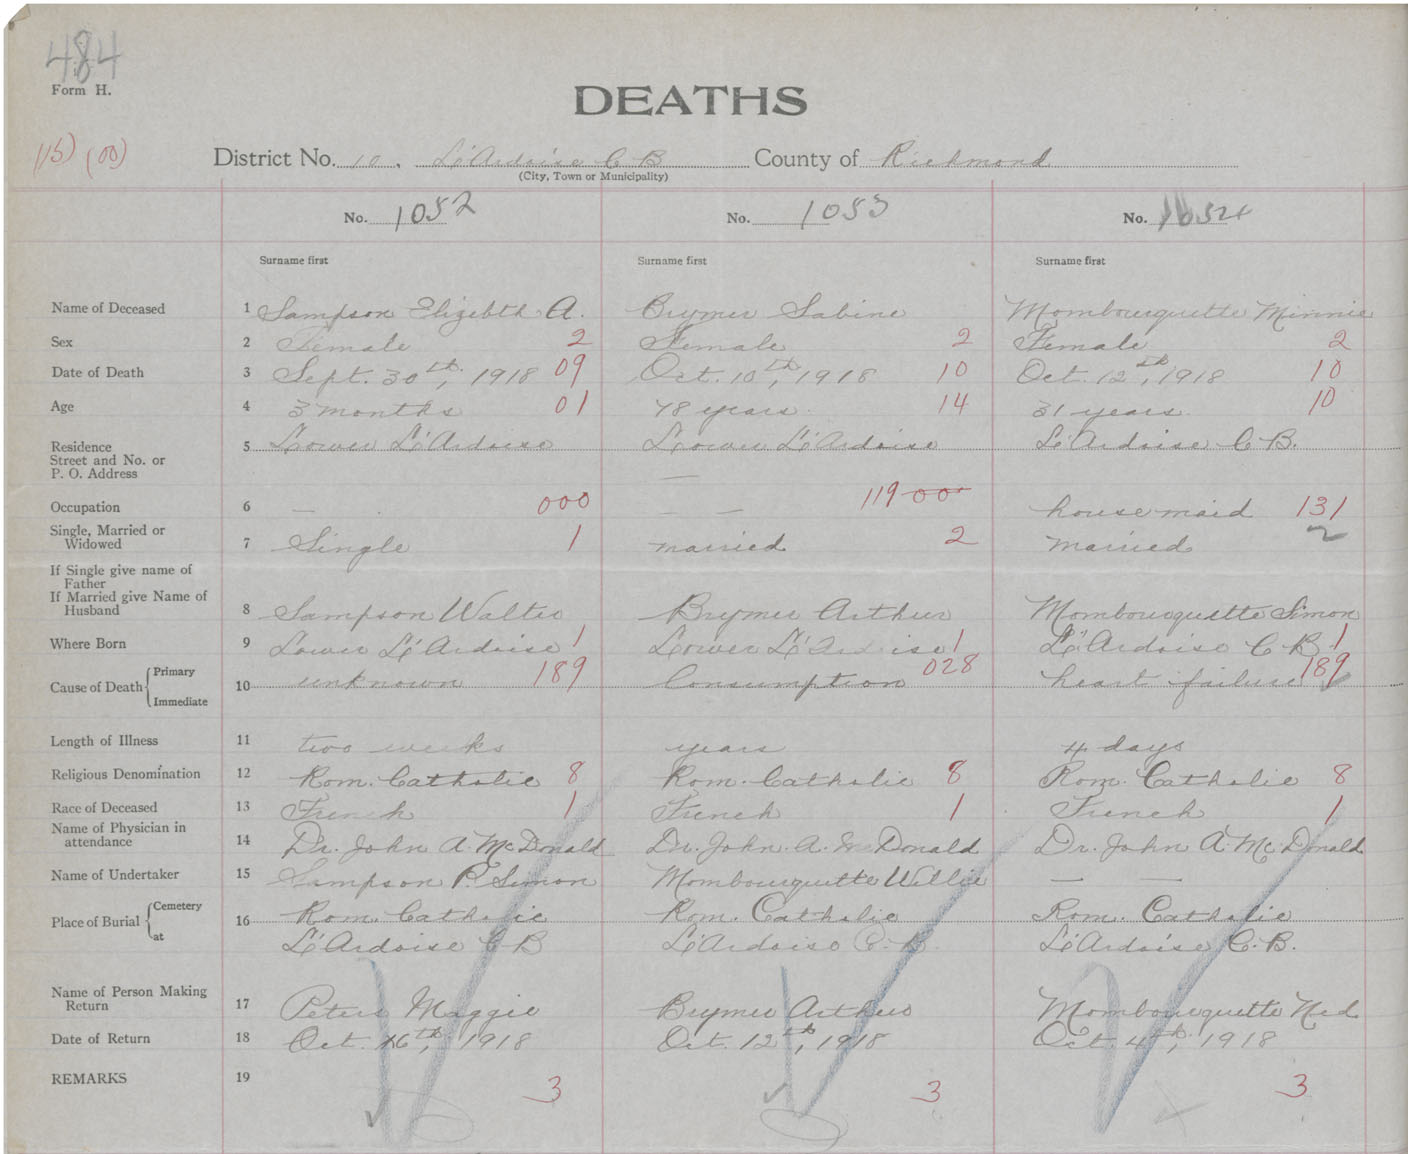 484
Form H.
DEATHS
115) (00)
District No. 10. L'Ardoise C B County of Richmond
(City, Town or Municipality)
No. 1052 No. 1053 No. 1054
Surname first Surname first Surname first
Name of Deceased 1 Sampson Elizebth A. Brymer Sabine Mombourquette Minnie
Sex 2 Female 2 Female 2 Female 2
Date of Death 3 Sept. 30th, 1918 09 Oct. 10th, 1918 10 Oct. 12th, 1918 10
Age 4 3 months 01 78 years. 14 31 years. 10
Residence 5 Lower L'Ardoise Lower L'Ardoise L'Ardoise C B.
Street and No. or
P. O. Address —
Occupation 6 — 000 — — 119 00 house maid 131
Single, Married or
Widowed 7 Single 1 married 2 married 2
If Single give name of
Father
If Married give Name of
Husband 8 Sampson Walter Brymer Arthur Mombourquette Simon
Where Born 9 Lower L'Ardoise 1 Lower L'Ardoise 1 L'Ardoise C B 1
Cause of Death Primary 10 unknown 189 Consumption 028 heart failure 189
Immediate
Length of Illness 11 two weeks years 4 days
Religious Denomination 12 Rom. Catholic 8 Rom. Catholic 8 Rom. Catholic 8
Race of Deceased 13 French 1 French 1 French 1
Name of Physician in
attendance 14 Dr. John A. McDonald Dr. John. A. McDonald Dr. John A. McDonald
Name of Undertaker 15 Sampson P. Simon Mombourquette Willie — —
Place of Burial Cemetery 16 Rom. Catholic Rom. Catholic Rom. Catholic
at L'Ardoise C B L'Ardoise C. B. L'Ardoise C. B.
Name of Person Making
Return 17 Peters Maggie Brymer Arthur Mombourquette Ned
Date of Return 18 Oct. 16th, 1918 Oct. 12th, 1918 Oct 4th, 1918
REMARKS 19 3 3 3